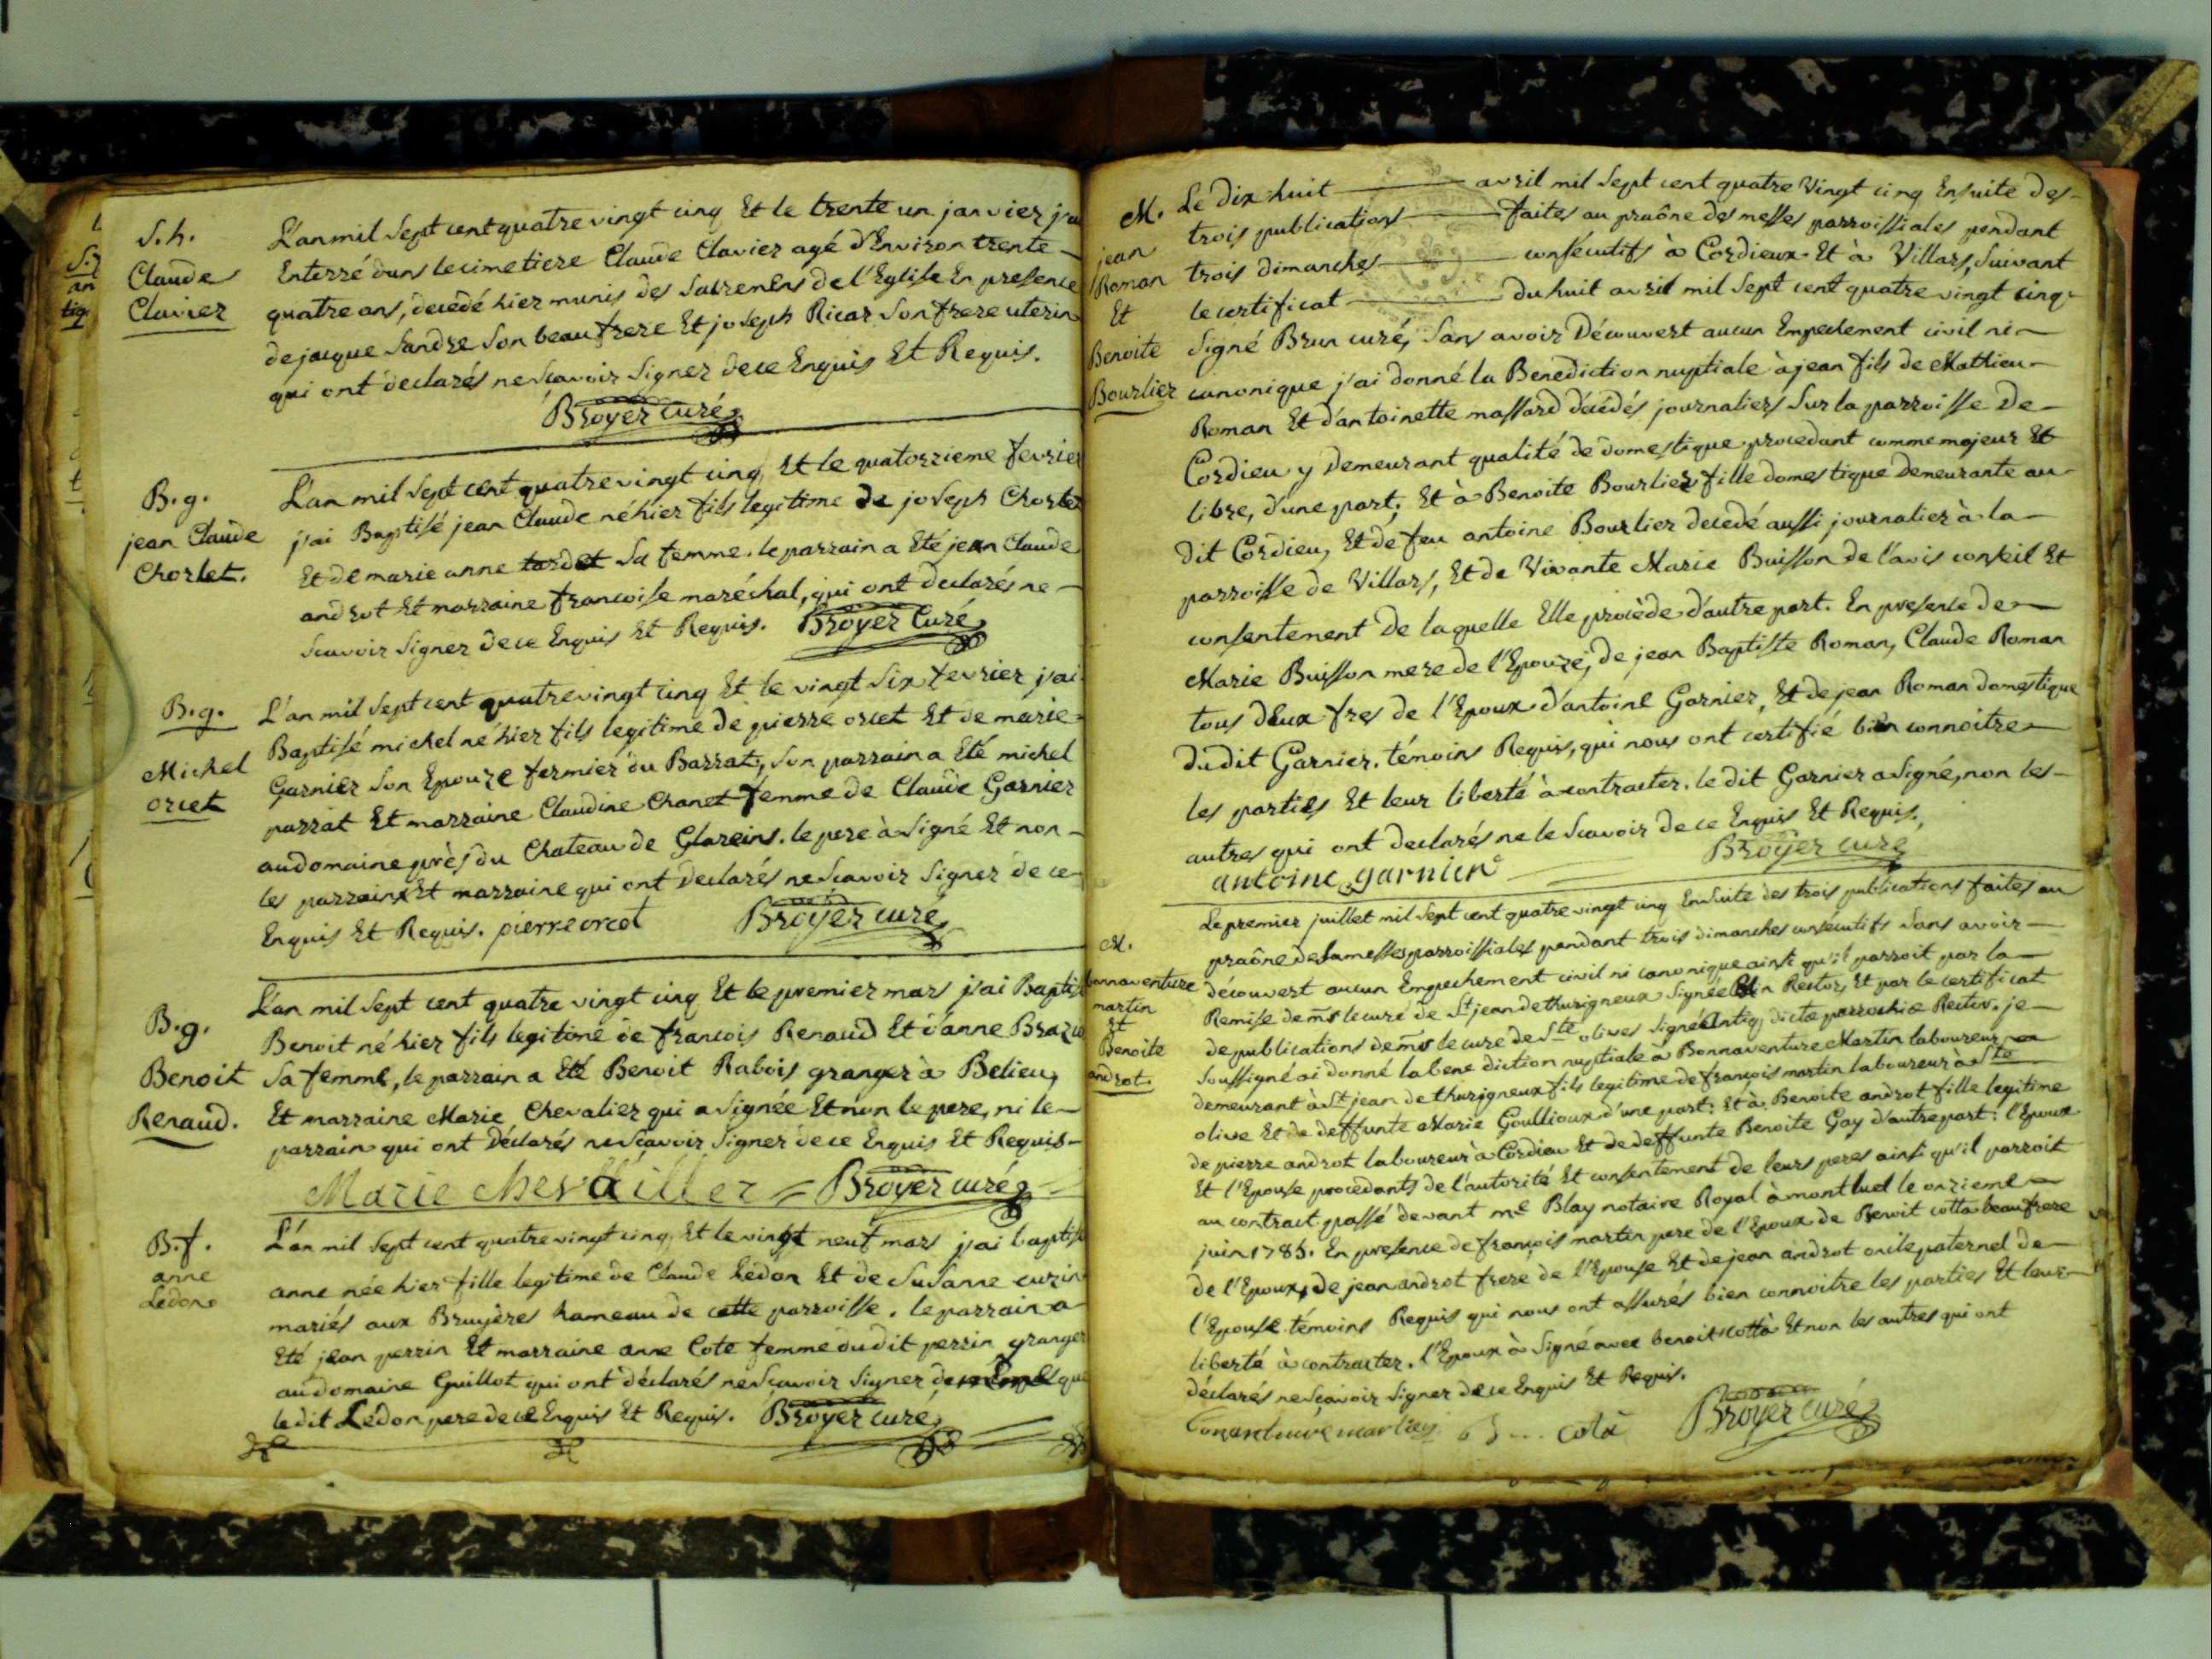 S.h.
Claude
Clavier
L'an mil Sept cent quatre vingt cinq Et le trente un janvier j'ai
Enterré dans le cimetiere Claude Clavier agé d'Environ trente
quatre ans, decédé hier munis des Sacremens de l'Eglise En presence
de jacque Sandre Son beau frere Et joseph Ricar Son frere uterin
qui ont déclarés ne Scavoir Signer de ce Enquis Et Requis.
Broyer curé
B.g.
jean Claude
Chorlet.
L'an mil Sept cent quatre vingt cinq Et le quatorzieme fevrier
j'ai Baptisé jean Claude né hier fils legitime de joseph Chorlet
Et de marie anne tardet Sa femme. le parrain a Eté jean Claude
androt Et marraine francoise maréchal, qui ont declarés ne
Scavoir Signer de ce Enquis Et Requis. Broyer Curé
B.g.
Michel
orcet
L'an mil Sept cent quatre vingt cinq Et le vingt Six fevrier j'ai
Baptisé michel né hier fils legitime de pierre orcet Et de marie
Garnier Son Epouze fermier du Barrat, Son parrain a Eté michel
parrat Et marraine Claudine Chanet femme de Claude Garnier
au domaine près du Chateau de Glareins. le pere à Signé Et non
les parrain Et marraine qui ont Declarés ne Scavoir Signer de ce
Enquis Et Requis. pierre orcet Broyer curé
B.g.
Benoit
Renaud.
L'an mil Sept cent quatre vingt cinq Et le premier mars j'ai Baptisé
Benoit né hier fils legitime de francois Renaud Et d'anne
Sa femme, le parrain a Eté Benoit Rabois granger à Belieu,
Et marraine Marie Chevalier qui a Signée Et non le pere, ni le
parrain qui ont Déclarés ne Scavoir Signer de ce Enquis Et Requis
Marie chevaillier Broyer curé
B.f.
anne
Ledon
L'an mil Sept cent quatre vingt cinq, Et le vingt neuf mars j'ai baptisé
anne née hier fille legitime de Claude Ledon Et de Susanne curin
mariés aux Bruyères hameau de cette parroisse. le parrain a
Eté jean perrin Et marraine anne Cote femme du dit perrin granger
au domaine Guillot qui ont déclarés ne Scavoir Signer de même que
le dit Ledon pere de ce Enquis Et Requis. Broyer curé
M.
jean
Roman
Et
Benoite
Bourlier
Le Dix huit avril mil Sept cent quatre Vingt cinq Ensuite des
trois publications faites au praône des messes parroissiales pendant
trois dimanches consécutifs à Cordieux Et à Villars, Suivant
le certificat Du huit avril mil Sept cent quatre vingt cinq
Signé Brun curé, Sans avoir Découvert aucun Empechement civil ni
canonique j'ai donné la Benediction nuptiale à jean fils de Mathieu
Roman Et d'antoinette massard décédés journaliers Sur la parroisse De
Cordieu y Demeurant qualité de domestique procedant comme majeur Et
libre, d'une part; Et à Benoite Bourlier fille domestique Demeurante au
dit Cordieu, Et de feu antoine Bourlier decedé aussi journalier à la
parroisse de Villars, Et de Vivante Marie Buisson de l'avis conseil Et
consentement De laquelle Elle procède d'autre part. En presence de
Marie Buisson mere de l'Epouze, de jean Baptiste Roman, Claude Roman
tous deux fres de l'Epoux d'antoine Garnier, Et de jean Roman domestique
du dit Garnier. témoins Requis, qui nous ont certifié bien connoitre
les parties Et leur liberté à contracter. le dit Garnier a Signé, non les
autres qui ont declarés ne le Scavoir de ce Enquis Et Requis.
antoine garnier Broyer curé
M.
bonnaventure
martin
Et
Benoite
androt.
Le premier juillet mil Sept cent quatre vingt cinq Ensuite des trois publications faites au
praône de la messes parroissiales pendant trois dimanches consécutifs Sans avoir
découvert aucun Empechement civil ni canonique ainsi qu'il parroit par la
Remise de mr le curé de St jean de thurigneux Signée Rector, Et par le certificat
de publications de mr le curé de Ste olives Signé dictæ parrochiæ Rector. je
Soussigné ai donné la bene diction nuptiale à Bonnaventure Martin laboureur
demeurant à St jean de thurigneux fils legitime de françois martin laboureur à Ste
olive Et de deffunte Marie Goullioux d'une part; Et à Benoite androt fille legitime
de pierre androt laboureur à Cordieu Et de deffunte Benoite Gay d'autre part: l'Epoux
Et l'Epouse procedants de l'autorité Et consentement de leurs peres ainsi qu'il parroit
au contract passé devant me Blay notaire Royal à montluel le onzieme
juin 1785. En presence de françois martin pere de l'Epoux de Benoit cotta beau frere
de l'Epoux, de jean androt frere de l'Epouse Et de jean androt oncle paternel de
l'Epouse témoins Requis qui nous ont assurés bien connoitre les parties Et leur
liberté à contracter. l'Epoux à Signé avec benoit cotta Et non les autres qui ont
déclarés ne Scavoir Signer de ce Enquis Et Requis.
martin cota Broyer curé